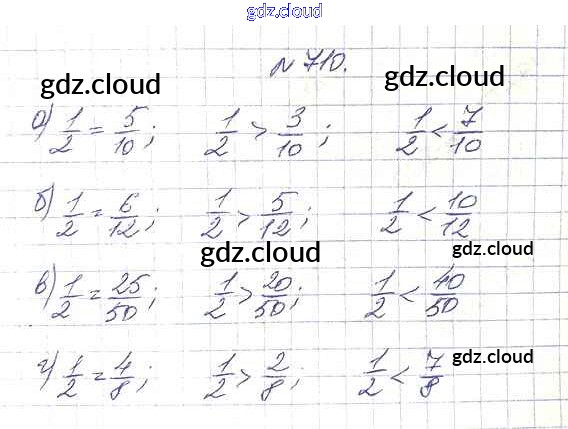 gdz.cloud
№ 710.
gdz.cloud gdz.cloud
а) 1/2 = 5/10; 1/2 > 3/10; 1/2 < 7/10
б) 1/2 = 6/12; 1/2 > 5/12; 1/2 < 10/12
gdz.cloud gdz.cloud
в) 1/2 = 25/50; 1/2 > 20/50; 1/2 < 40/50
г) 1/2 = 4/8; 1/2 > 2/8; 1/2 < 7/8 gdz.cloud